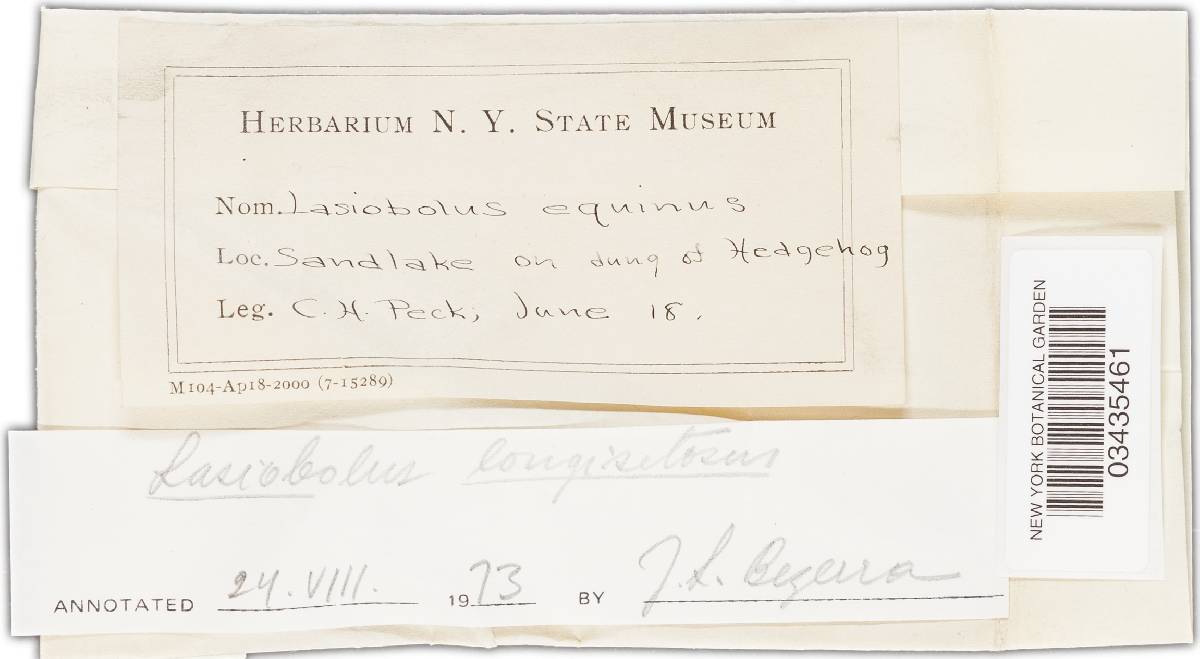 HERBARIUM N. Y. STATE MUSEUM
Nom. Lasiobolus equinus
Loc. Sandlake on dung of Hedgehog
Leg. C. H. Peck, June 18.
M104-Ap18-2000 (7-15289)
Lasiobolus longisetosus
ANNOTATED 24. VIII. 1973 BY J. L. Bezerra
NEW YORK BOTANICAL GARDEN
03435461